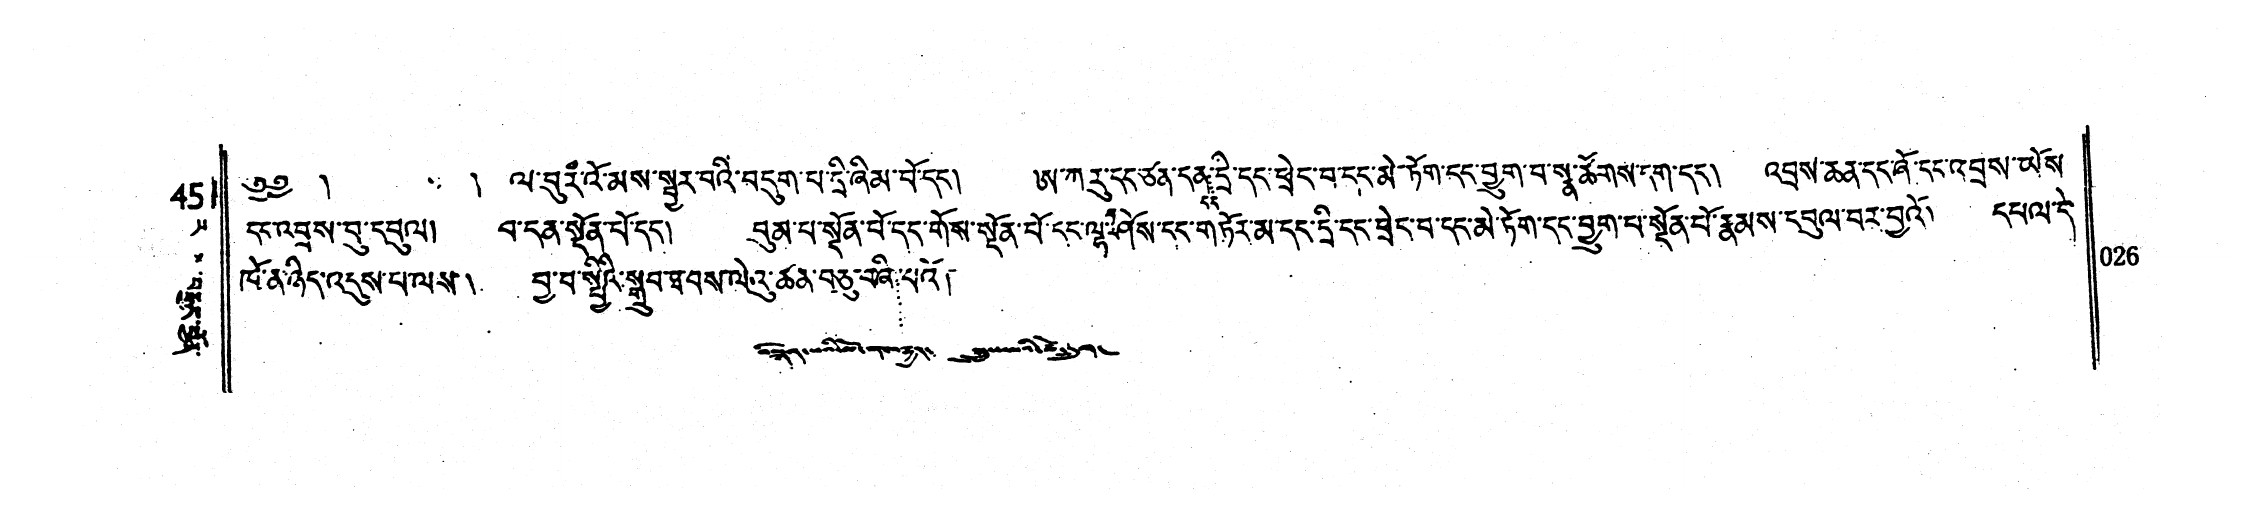 ༄༅། ། ལ་བུ་རཾ་འོ་མས་སྦྱར་བའི་བདུག་པ་དྲི་ཞིམ་པོ་དང། ཨ་ཀ་རུ་དང་ཙན་དན་དྲི་དང་ཕྲེང་བ་དང་མེ་ཏོག་དང་བྱུག་པ་སྣ་ཚོགས་དག་དང། འབྲས་ཆན་དང་ཞོ་དང་འབྲས་ཡོས
དང་འབྲས་བུ་དབུལ། བ་དན་སྔོན་པོ་དང། བུམ་པ་སྔོན་པོ་དང་གོས་སྔོན་པོ་དང་ལྷ་བཤོས་དང་གཏོར་མ་དང་དྲི་དང་ཕྲེང་བ་དང་མེ་ཏོག་དང་བྱུག་པ་སྔོན་པོ་རྣམས་དབུལ་བར་བྱའོ། དཔལ་དེ
ཁོ་ན་ཉིད་འདུས་པ་ལས། བྱ་བ་སྤྱིའི་སྒྲུབ་ཐབས་ལེའུ་ཚན་བཅུ་བཞི་པའོ།
45
026